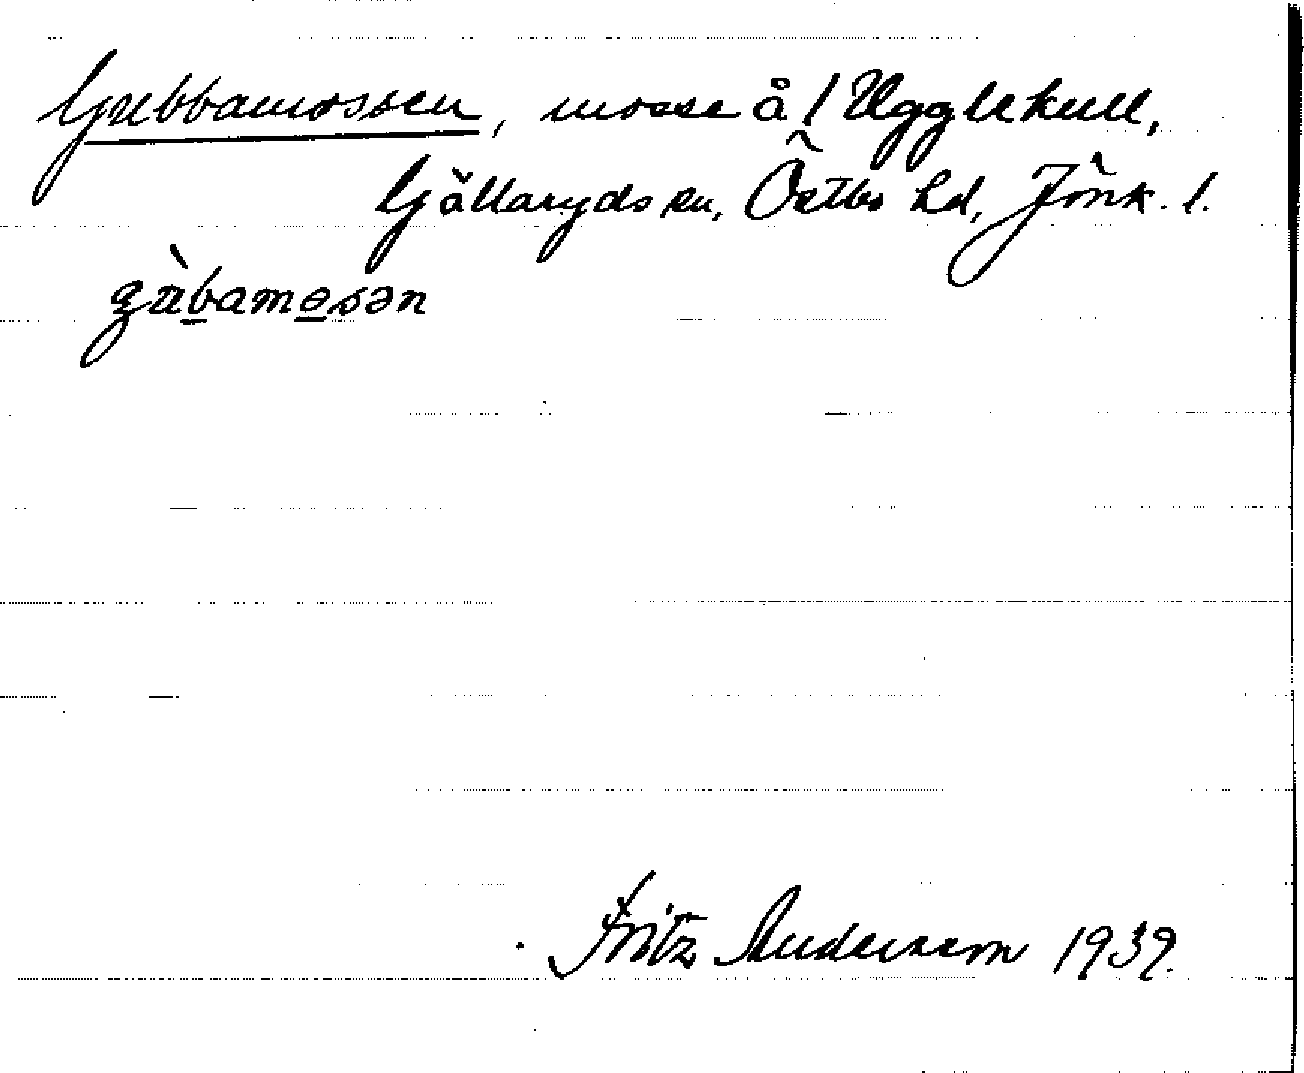 Gubbamossen, mosse å / Ugglekull,
Gällaryds sn, Östbo hd, Jönk. l.
gùbamosən
Fritz Anderson 1939.